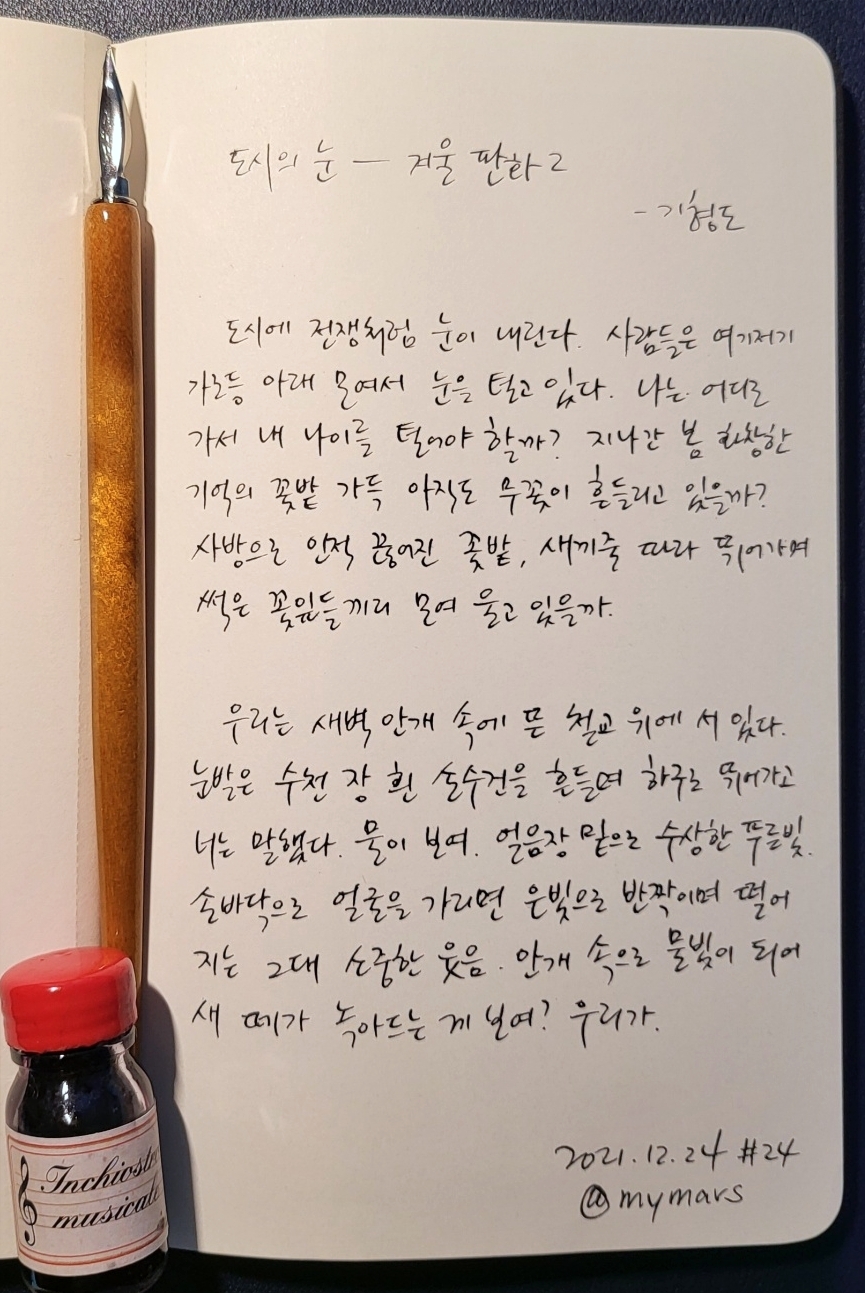 도시의 눈 — 겨울 판화 2
- 기형도
도시에 전쟁처럼 눈이 내린다. 사람들은 여기저기
가로등 아래 모여서 눈을 털고 있다. 나는 어디로
가서 내 나이를 털어야 할까? 지나간 봄 화창한
기억의 꽃밭 가득 아직도 무꽃이 흔들리고 있을까?
사방으로 인적 끊어진 꽃밭, 새끼줄 따라 뛰어가며
썩은 꽃잎들끼리 모여 울고 있을까.
우리는 새벽 안개 속에 뜬 철교 위에 서 있다.
눈발은 수천 장 흰 손수건을 흔들며 하구로 뛰어가고
너는 말했다. 물이 보여. 얼음장 밑으로 수상한 푸른빛.
손바닥으로 얼굴을 가리면 은빛으로 반짝이며 떨어
지는 그대 소중한 웃음. 안개 속으로 물빛이 되어
새 떼가 녹아드는 게 보여? 우리가.
2021.12.24 #24
@mymars
Inchiostro
musicale